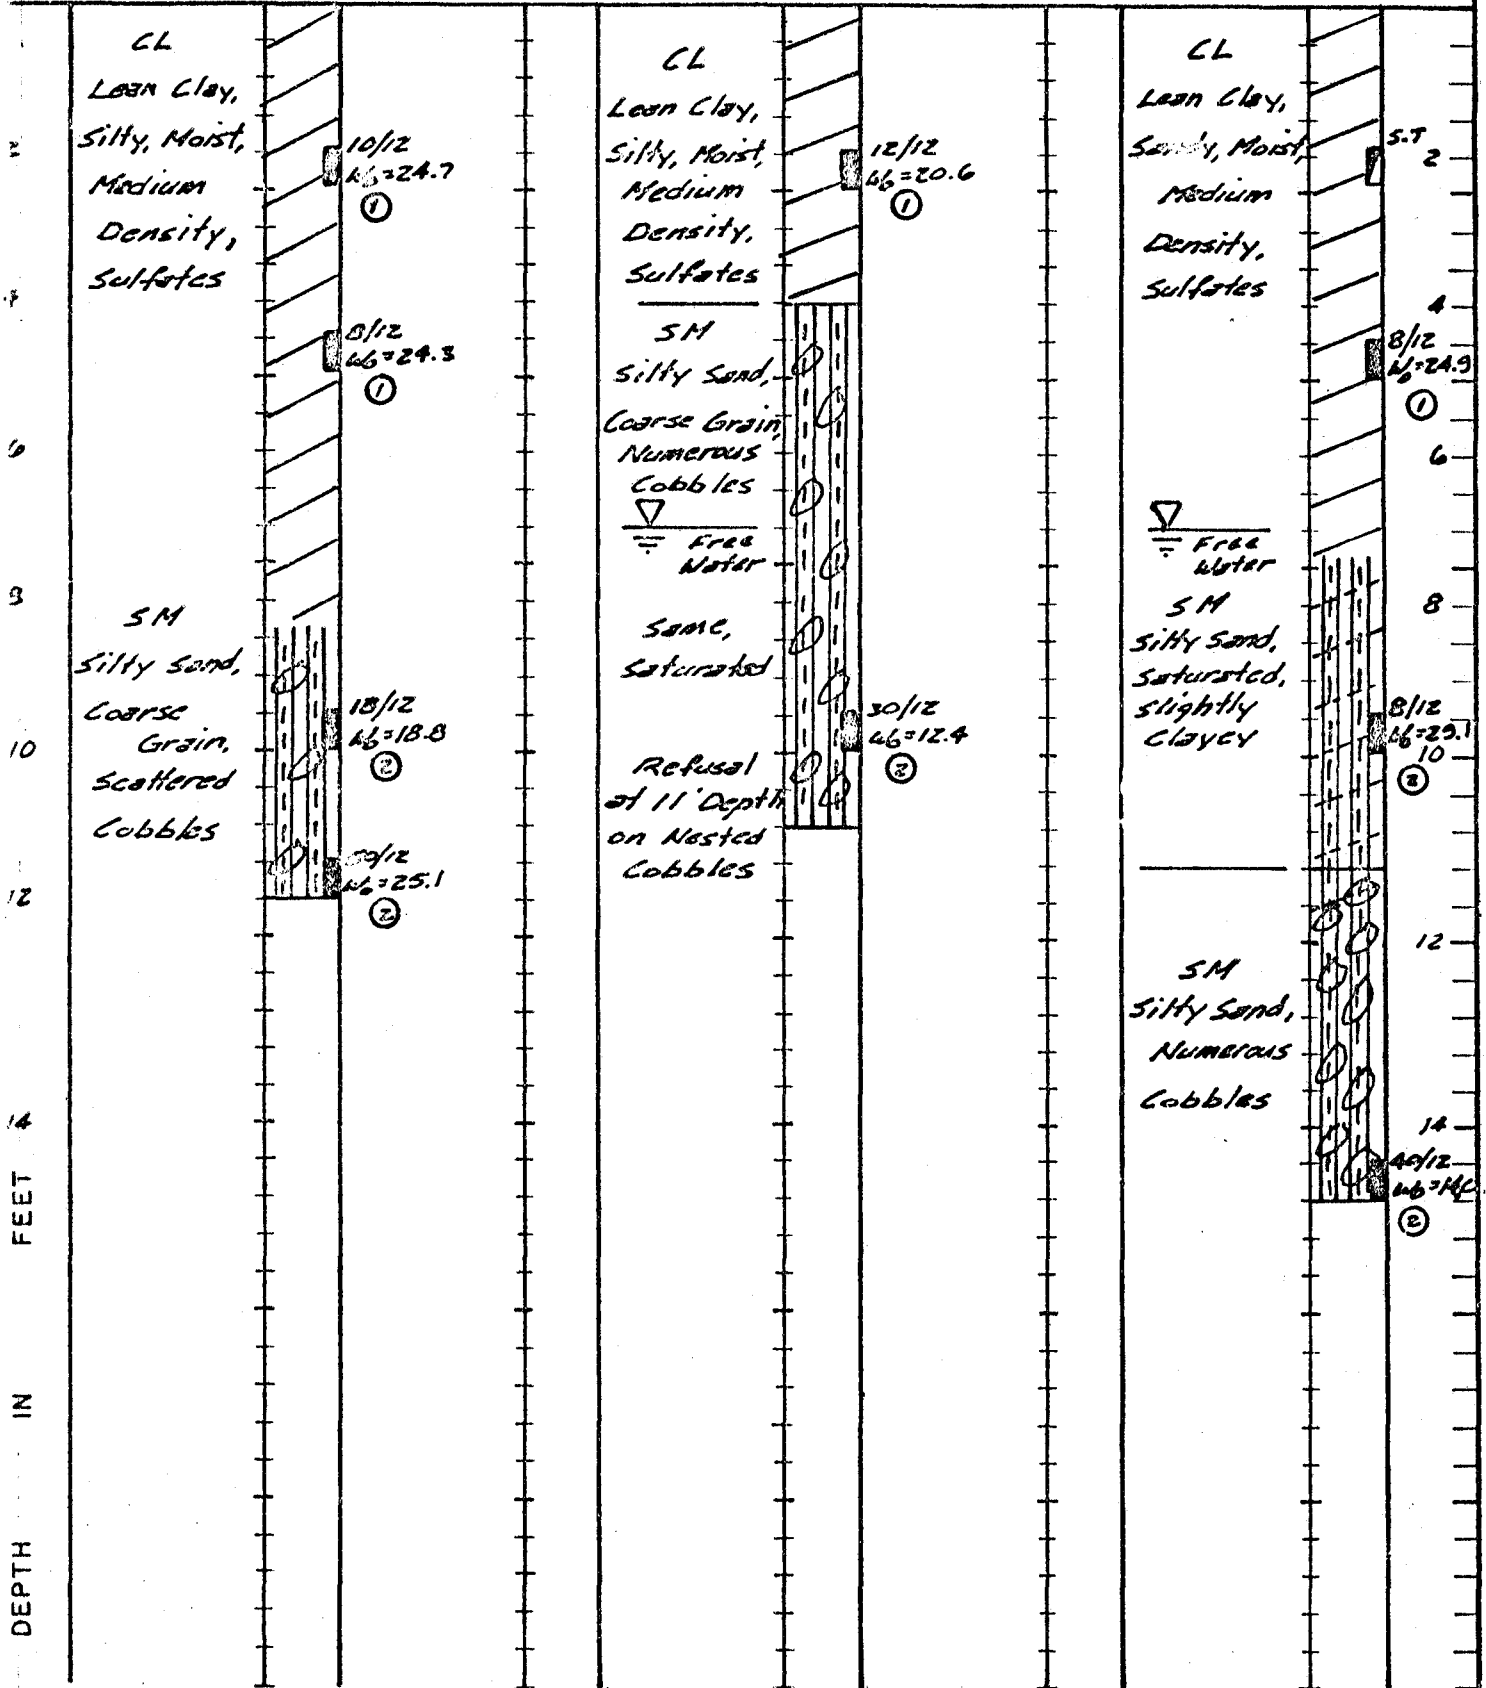 CL
Lean Clay,
Silty, Moist,
Medium
Density,
Sulfates
10/12
Wo=24.7
1
8/12
Wo=24.3
1
SM
Silty Sand,
Coarse
Grain,
Scattered
Cobbles
18/12
Wo=18.8
2
Wo=25.1
2
CL
Lean Clay,
Silty, Moist,
Medium
Density,
Sulfates
12/12
Wo=20.6
1
SM
Silty Sand,
Coarse Grain,
Numerous
Cobbles
Free
Water
Same,
Saturated
30/12
Wo=12.4
2
Refusal
at 11' Depth
on Nested
Cobbles
CL
Lean Clay,
Sandy, Moist,
Medium
Density,
Sulfates
S.T
8/12
Wo=24.9
1
Free
Water
SM
Silty Sand,
Saturated,
Slightly
Clayey
8/12
Wo=29.1
2
SM
Silty Sand,
Numerous
Cobbles
40/12
2
2
4
6
8
10
12
14
6
8
10
12
14
DEPTH IN FEET